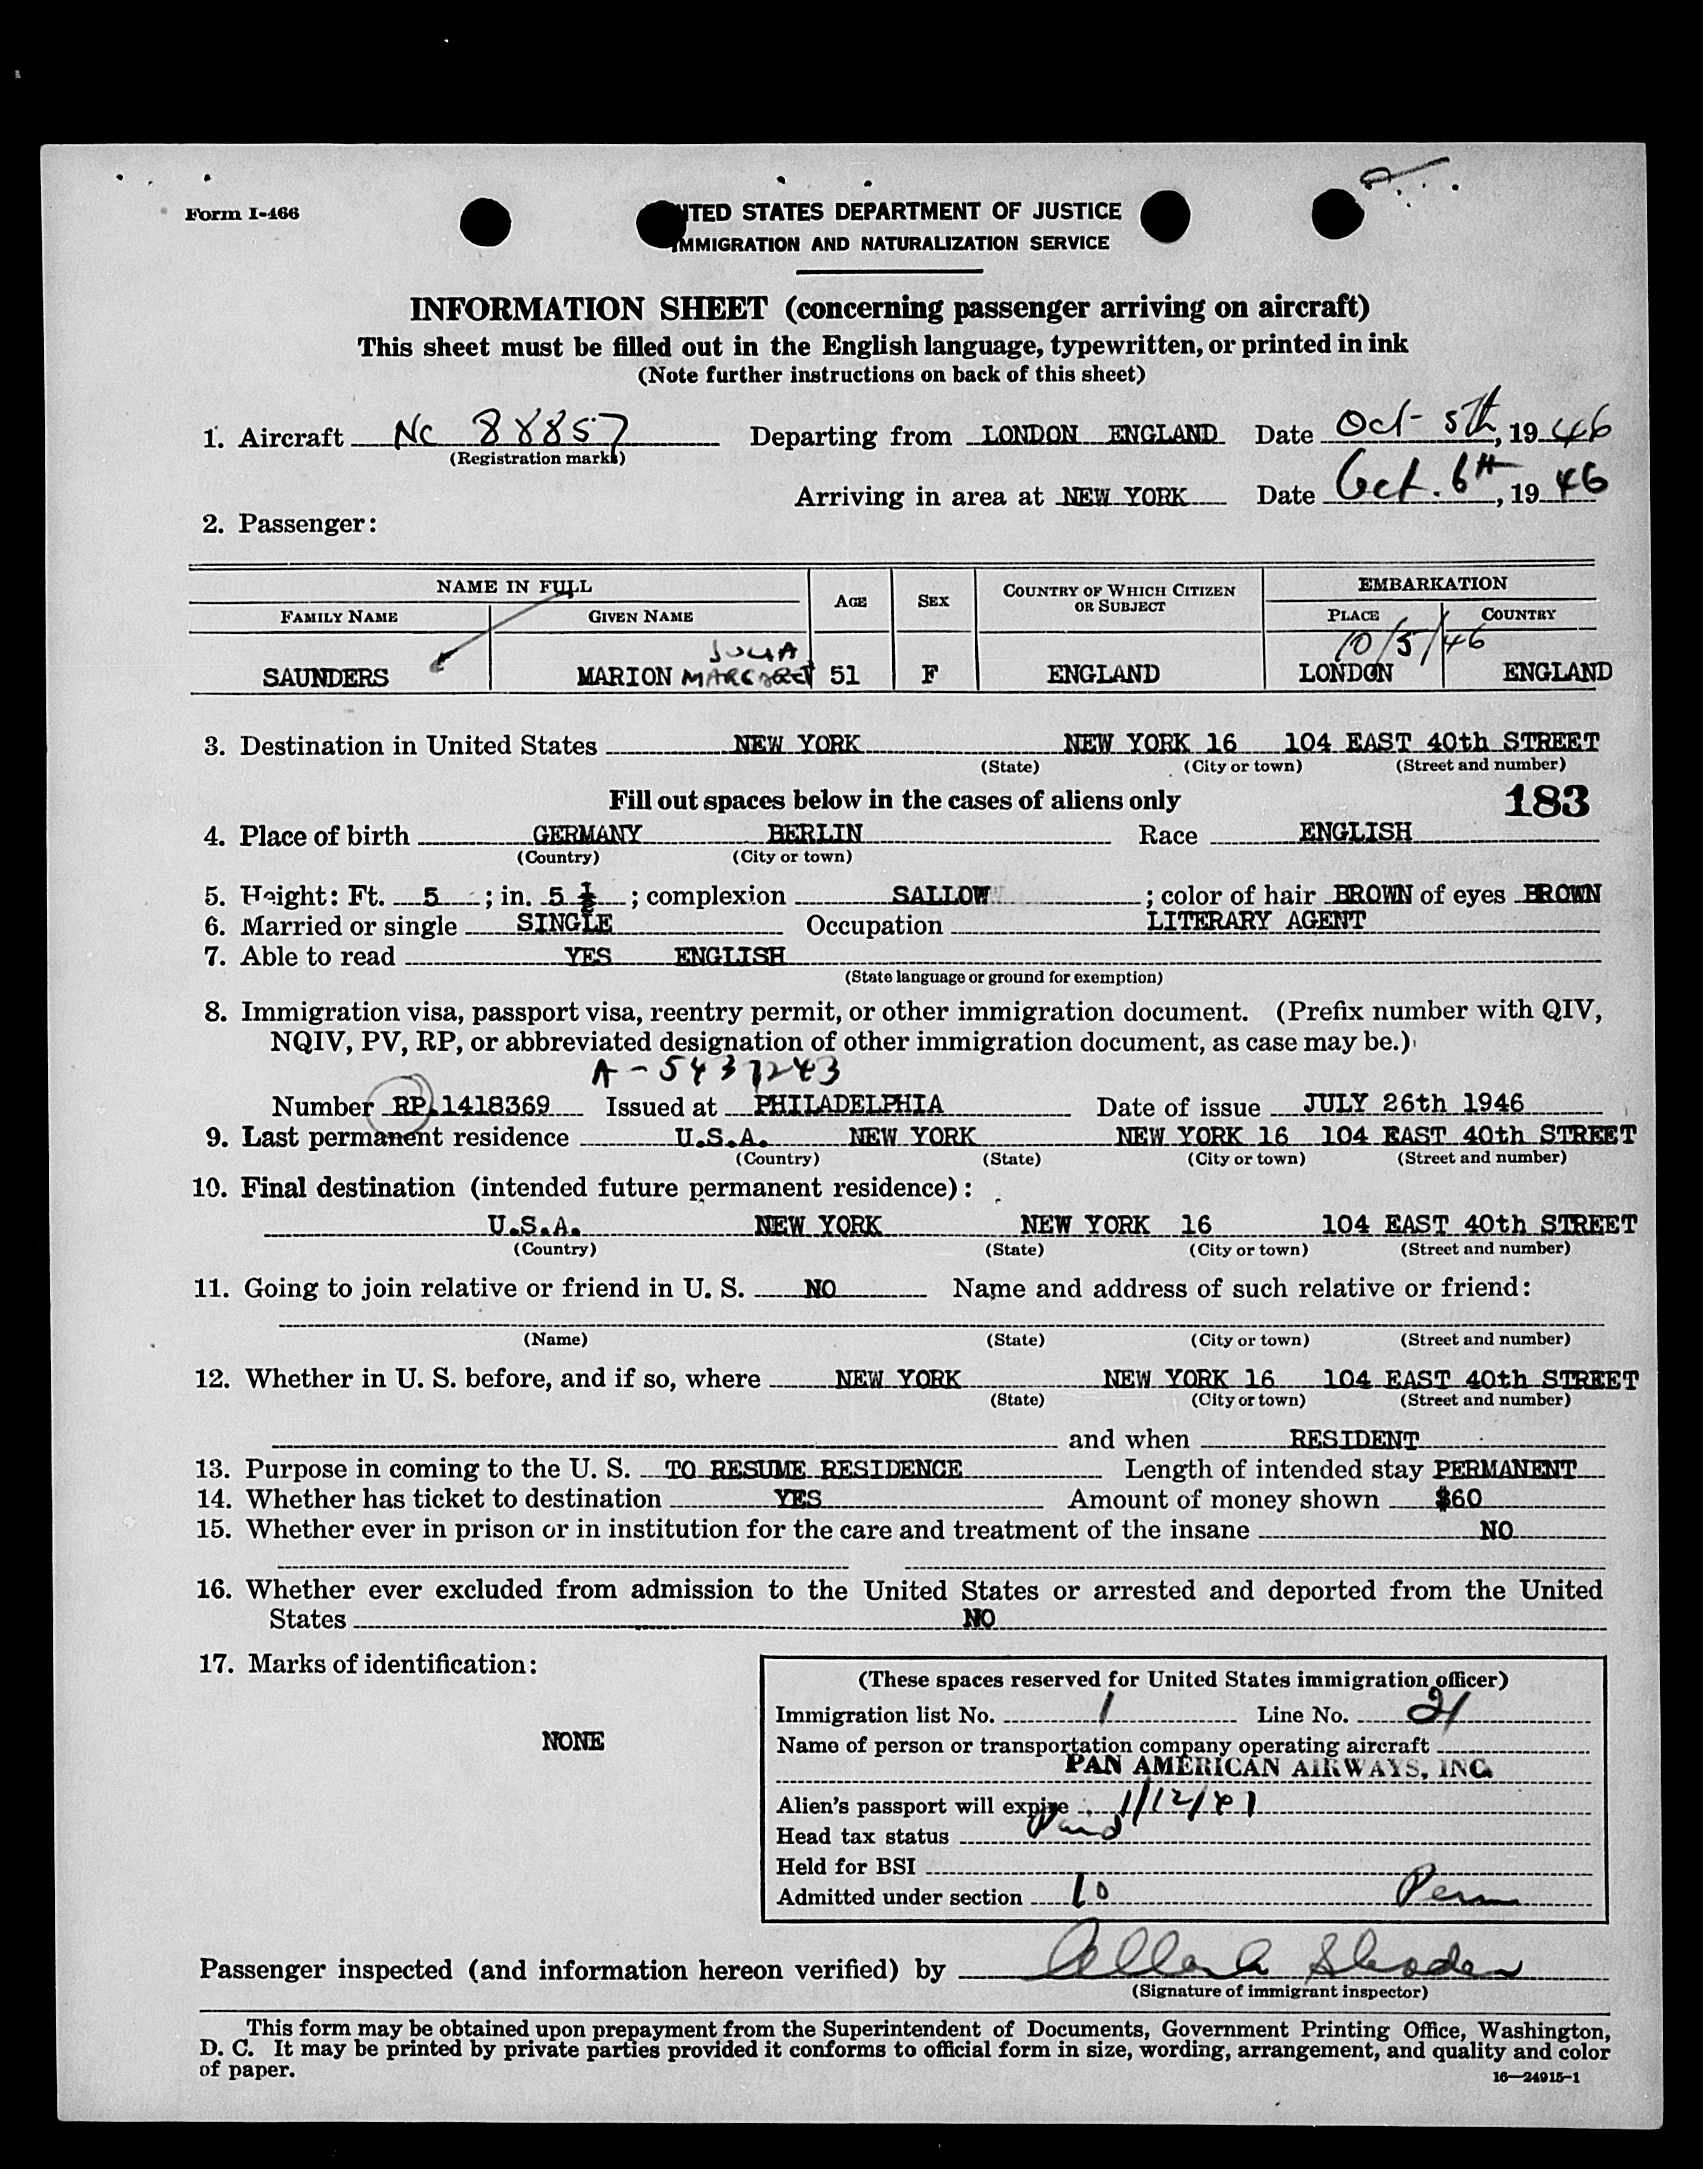 Form I-466
UNITED STATES DEPARTMENT OF JUSTICE
IMMIGRATION AND NATURALIZATION SERVICE
INFORMATION SHEET (concerning passenger arriving on aircraft)
This sheet must be filled out in the English language, typewritten, or printed in ink
(Note further instructions on back of this sheet)
1. Aircraft NC 88857 Departing from LONDON ENGLAND Date Oct- 5th, 1946
(Registration marks)
Arriving in area at NEW YORK Date Oct. 6th, 1946
2. Passenger:
NAME IN FULL AGE SEX COUNTRY OF WHICH CITIZEN OR SUBJECT EMBARKATION
FAMILY NAME GIVEN NAME PLACE COUNTRY
JULIA 10/5/46
SAUNDERS MARION MARGARET 51 F ENGLAND LONDON ENGLAND
3. Destination in United States NEW YORK NEW YORK 16 104 EAST 40th STREET
(State) (City or town) (Street and number)
Fill out spaces below in the cases of aliens only 183
4. Place of birth GERMANY BERLIN Race ENGLISH
(Country) (City or town)
5. Height: Ft. 5 ; in. 5 ½ ; complexion SALLOW ; color of hair BROWN of eyes BROWN
6. Married or single SINGLE Occupation LITERARY AGENT
7. Able to read YES ENGLISH
(State language or ground for exemption)
8. Immigration visa, passport visa, reentry permit, or other immigration document. (Prefix number with QIV,
NQIV, PV, RP, or abbreviated designation of other immigration document, as case may be.)
A-5437243
Number RP.1418369 Issued at PHILADELPHIA Date of issue JULY 26th 1946
9. Last permanent residence U.S.A. NEW YORK NEW YORK 16 104 EAST 40th STREET
(Country) (State) (City or town) (Street and number)
10. Final destination (intended future permanent residence):
U.S.A. NEW YORK NEW YORK 16 104 EAST 40th STREET
(Country) (State) (City or town) (Street and number)
11. Going to join relative or friend in U. S. NO Name and address of such relative or friend:
(Name) (State) (City or town) (Street and number)
12. Whether in U. S. before, and if so, where NEW YORK NEW YORK 16 104 EAST 40th STREET
(State) (City or town) (Street and number)
and when RESIDENT
13. Purpose in coming to the U. S. TO RESUME RESIDENCE Length of intended stay PERMANENT
14. Whether has ticket to destination YES Amount of money shown $60
15. Whether ever in prison or in institution for the care and treatment of the insane NO
16. Whether ever excluded from admission to the United States or arrested and deported from the United
States NO
17. Marks of identification:
NONE
(These spaces reserved for United States immigration officer)
Immigration list No. 1 Line No. 21
Name of person or transportation company operating aircraft
PAN AMERICAN AIRWAYS, INC.
Alien's passport will expire 1/12/47
Head tax status Paid
Held for BSI
Admitted under section 10 Perm
Passenger inspected (and information hereon verified) by
(Signature of immigrant inspector)
This form may be obtained upon prepayment from the Superintendent of Documents, Government Printing Office, Washington,
D. C. It may be printed by private parties provided it conforms to official form in size, wording, arrangement, and quality and color
of paper.
16—24915-1